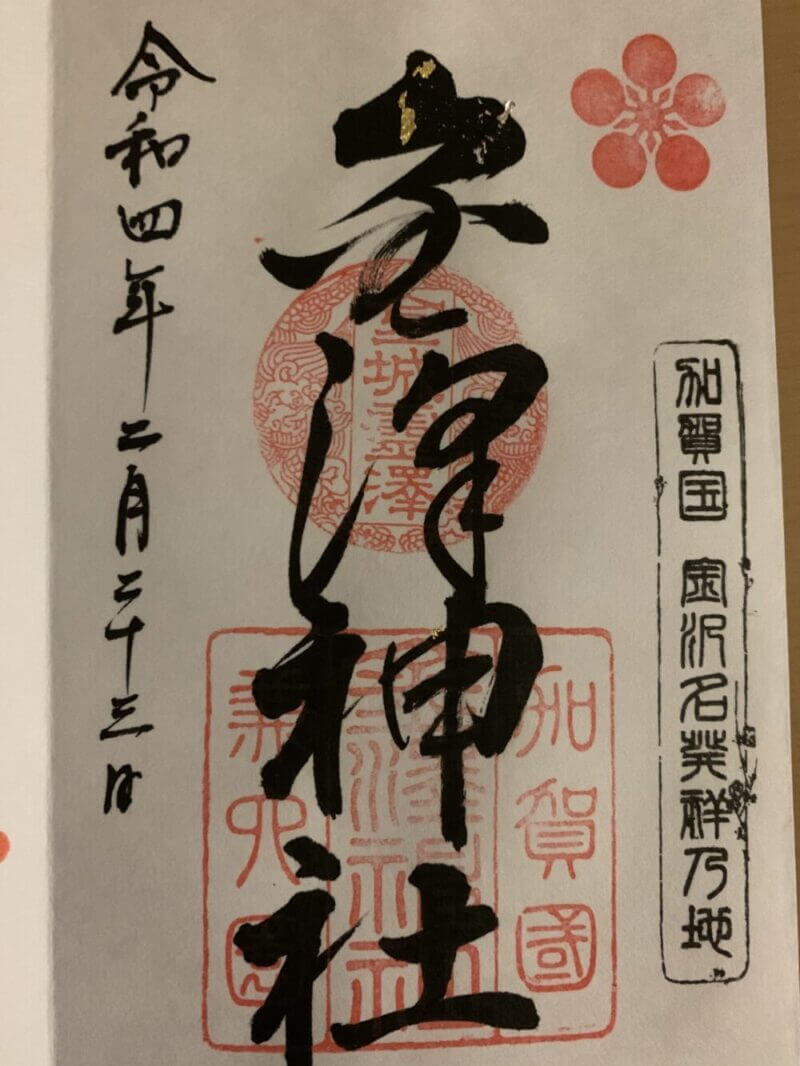 加賀国 金沢名発祥乃地
金澤神社
金城靈澤
加賀國
金澤神社
兼六園
令和四年二月二十三日